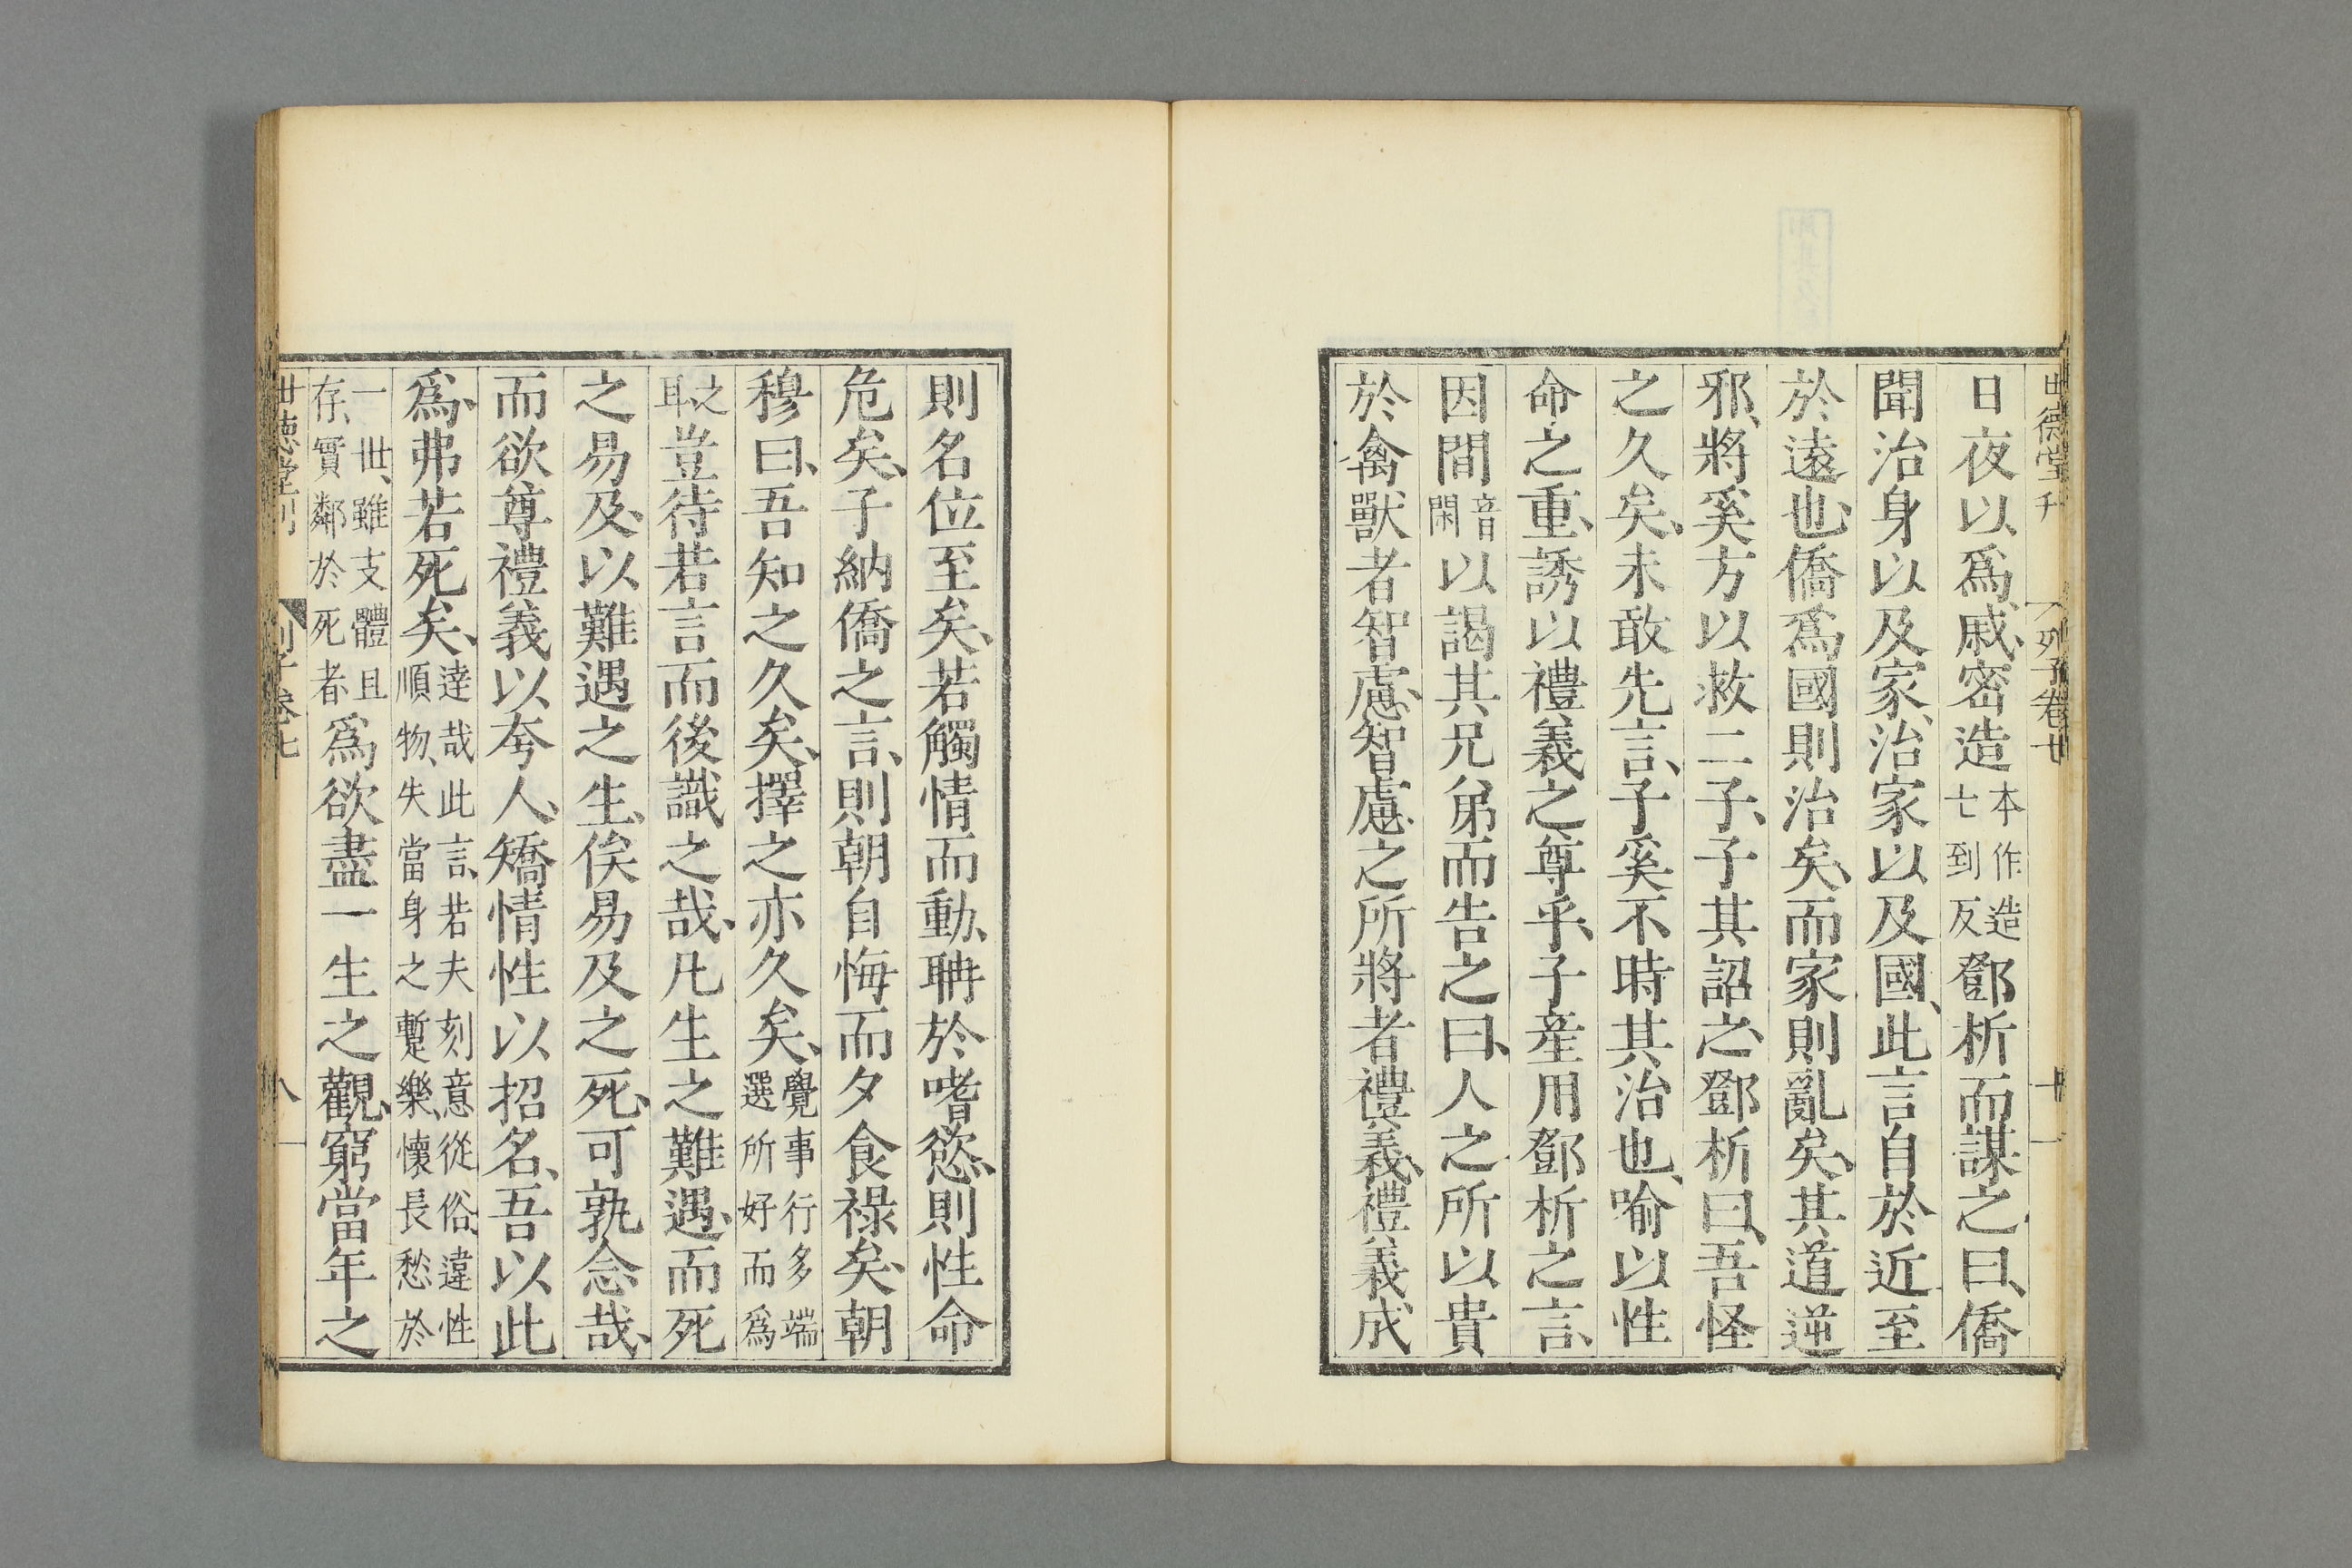 世德堂刊 列子卷七 十一
日夜以爲戚、密造本作造七到反鄧析而謀之曰、僑
聞治身以及家、治家以及國、此言自於近至
於遠也、僑爲國則治矣、而家則亂矣、其道逆
邪、將奚方以救二子、子其詔之、鄧析曰、吾怪
之久矣、未敢先言、子奚不時其治也、喻以性
命之重、誘以禮義之尊乎、子産用鄧析之言、
因間音閑以謁其兄弟而告之曰、人之所以貴
於禽獸者智慮、智慮之所將者禮義、禮義成
則名位至矣、若觸情而動、聃於嗜慾、則性命
危矣、子納僑之言、則朝自悔而夕食祿矣、朝
穆曰、吾知之久矣、擇之亦久矣、覺事行多端選所好而爲
之耳豈待若言而後識之哉、凡生之難遇、而死
之易及、以難遇之生、俟易及之死、可孰念哉、
而欲尊禮義以夸人、矯情性以招名、吾以此
爲、弗若死矣、達哉此言、若夫刻意從俗、違性順物、失當身之蹔樂、懷長愁於
一世、雖支體且存、實鄰於死者、爲欲盡一生之觀、窮當年之
世德堂刊 列子卷七 八